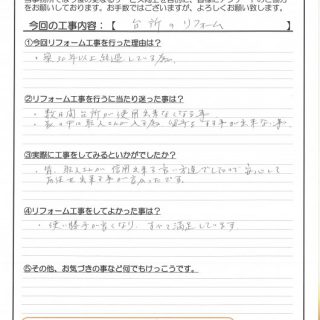 をお願いしております。お手数ではございますが、よろしくお願い致します。
今回の工事内容：【 台所のリフォーム
①今回リフォーム工事を行った理由は？
・築30年以上経過している為。
②リフォーム工事を行うに当たり迷った事は？
・数日間台所が使用出来なくなる事
・家の中に職人さんが入る為 留守にする事が出来ない事。
③実際に工事をしてみるといかがでしたか？
・皆、職人さんが信用出来る良い方達でしたので安心して
お任せ出来る事が良かったです。
④リフォーム工事をしてよかった事は？
・使い勝手が良くなり、すべて満足しています
⑤その他、お気づきの事など何でもけっこうです。